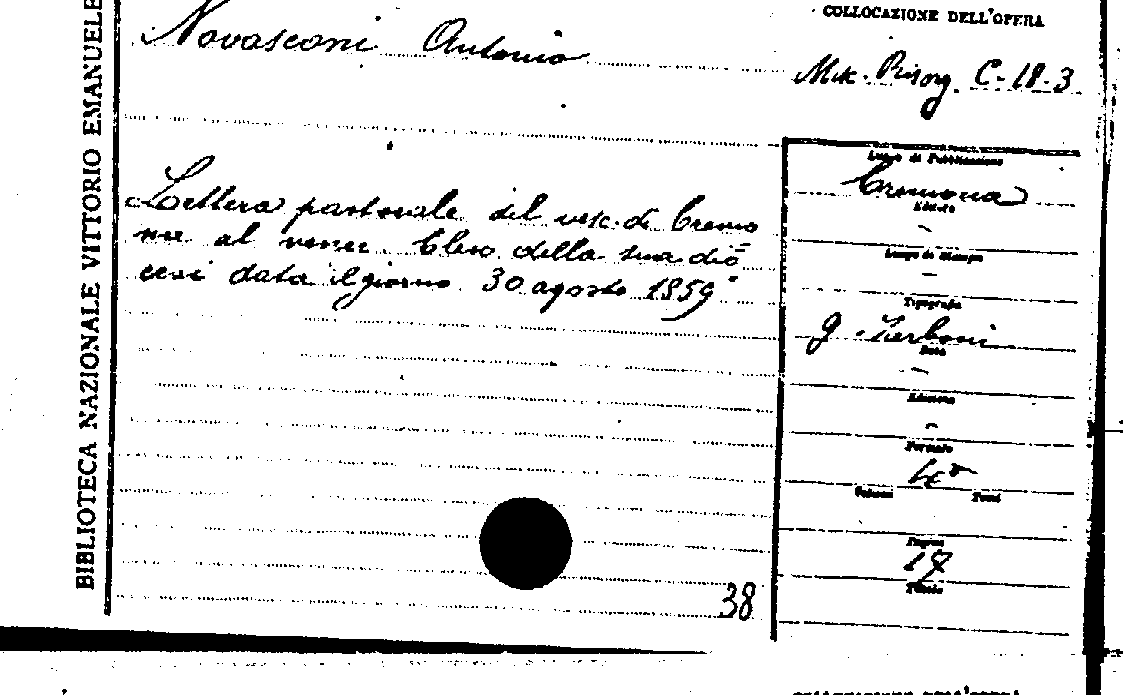 BIBLIOTECA NAZIONALE VITTORIO EMANUELE
Novasconi Antonio
COLLOCAZIONE DELL'OPERA
Misc. Risorg. C-18-3
Lettera pastorale del vesc. di Cremo
na al vener. Clero della sua dio
cesi data il giorno 30 agosto 1859
Luogo di Pubblicazione
Cremona
Editore
-
Luogo di Stampa
-
Tipografia
G. Feraboni
Data
-
Edizione
-
Formato
4°
Volumi Tomi
Pagine
17
Tavole
38